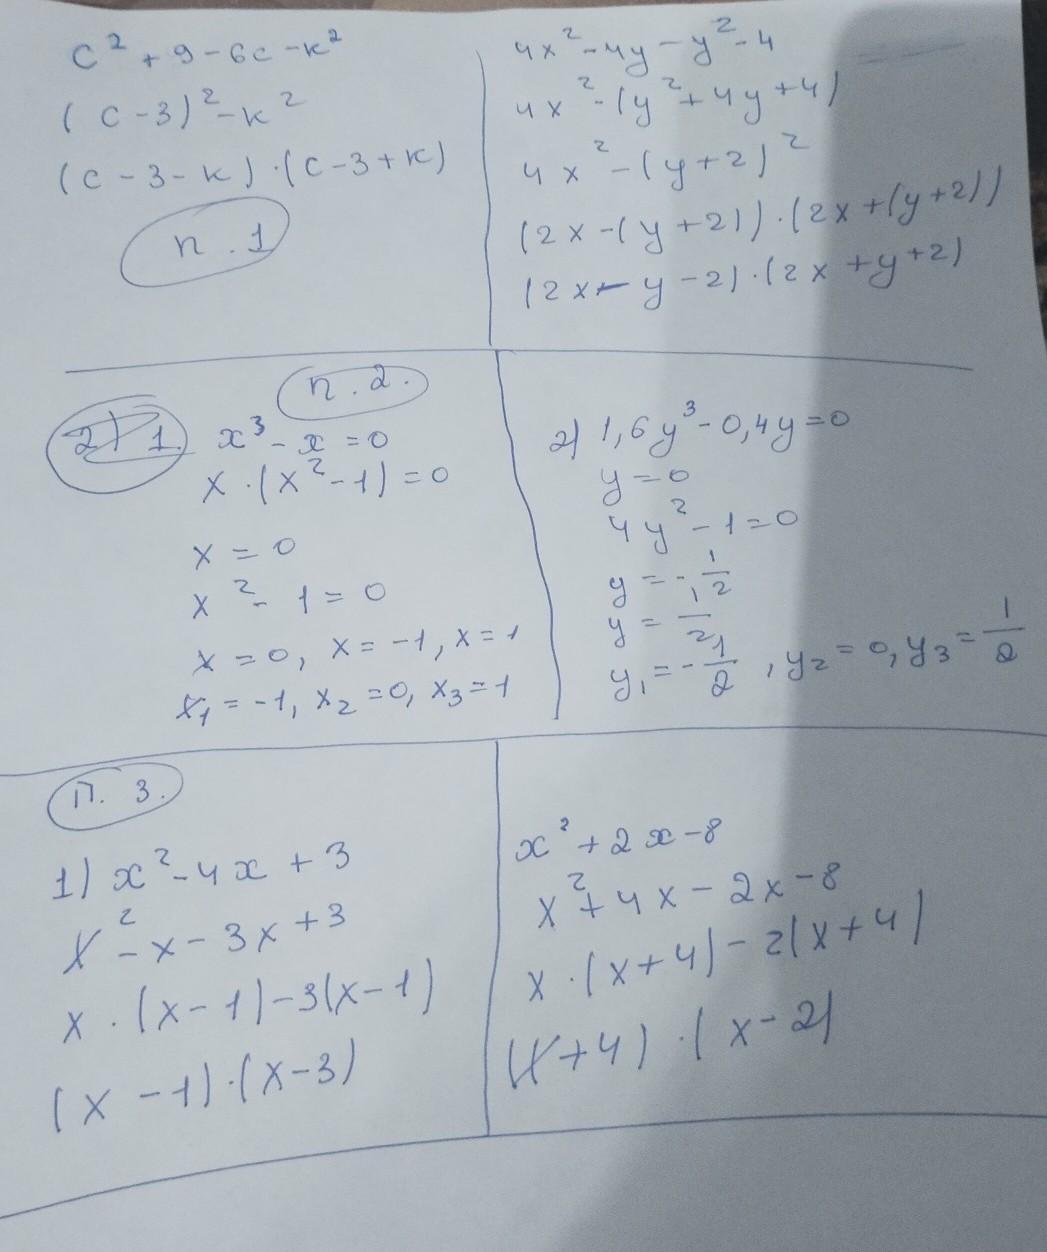 c² + 9 - 6c - к²
(c - 3)² - к²
(c - 3 - к) · (c - 3 + к)
п. 1
4x² - 4y - y² - 4
4x² - (y² + 4y + 4)
4x² - (y + 2)²
(2x - (y + 2)) · (2x + (y + 2))
(2x - y - 2) · (2x + y + 2)
п. 2.
2) 1. x³ - x = 0
x · (x² - 1) = 0
x = 0
x² - 1 = 0
x = 0, x = -1, x = 1
x₁ = -1, x₂ = 0, x₃ = 1
2) 1,6y³ - 0,4y = 0
y = 0
4y² - 1 = 0
y = -1/2
y = 1/2
y₁ = -1/2, y₂ = 0, y₃ = 1/2
П. 3.
1) x² - 4x + 3
x² - x - 3x + 3
x · (x - 1) - 3(x - 1)
(x - 1) · (x - 3)
x² + 2x - 8
x² + 4x - 2x - 8
x · (x + 4) - 2(x + 4)
(x + 4) · (x - 2)